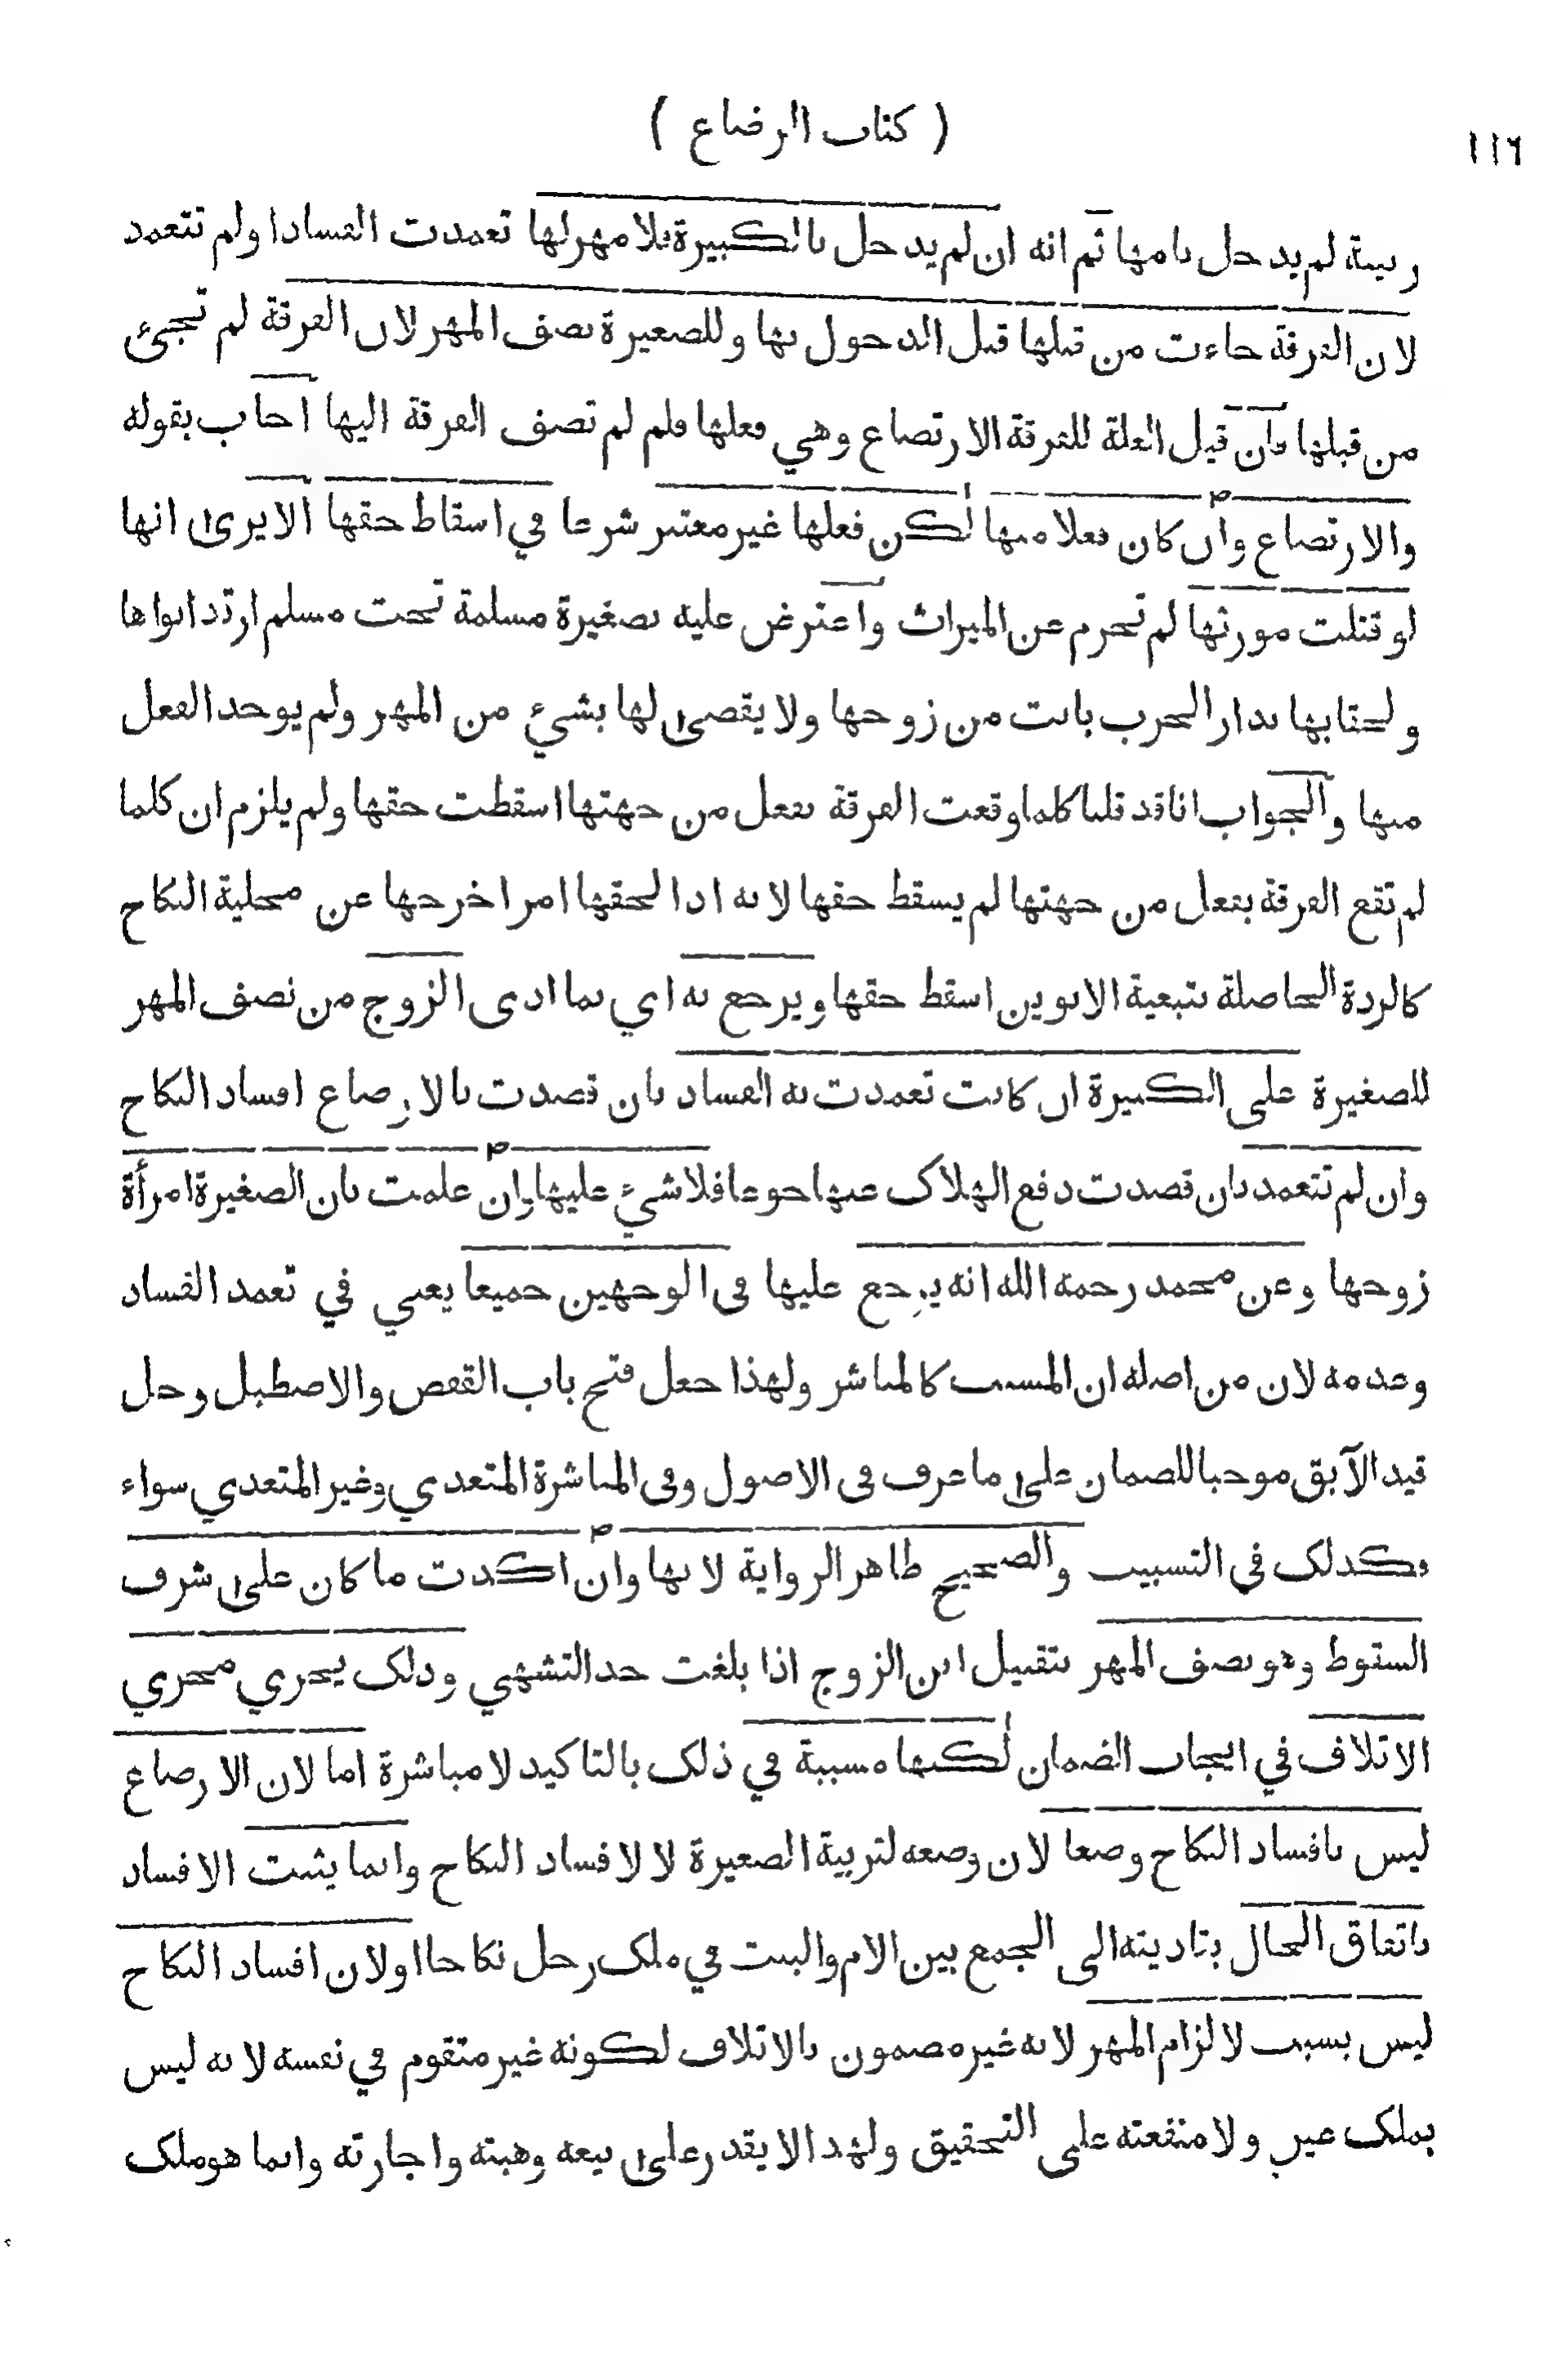 ( كتاب الرضاع )
١١٦
ربيبة لم يدخل بامها ثم انه ان لم يدخل بالكبيرة فلا مهر لها تعمدت الفساد او لم تتعمد
لان الفرقة جاءت من قبلها قبل الدخول بها وللصغيرة نصف المهر لان الفرقة لم تجئ
من قبلها فان قيل العلة للفرقة الارتضاع وهي فعلها فلم لم تضف الفرقة اليها اجاب بقوله
والارتضاع وان كان فعلا منها لكن فعلها غير معتبر شرعا في اسقاط حقها الا يرى انها
لو قتلت مورثها لم تحرم عن الميراث واعترض عليه بصغيرة مسلمة تحت مسلم ارتد ابواها
ولحقا بها بدار الحرب بانت من زوجها ولا يقضى لها بشيء من المهر ولم يوجد الفعل
منها والجواب انا قد قلنا كلما وقعت الفرقة بفعل من جهتها اسقطت حقها ولم يلزم ان كلما
لم تقع الفرقة بفعل من جهتها لم يسقط حقها لانه اذا لحقها امر اخرجها عن محلية النكاح
كالردة الحاصلة بتبعية الابوين اسقط حقها ويرجع به اي بما ادى الزوج من نصف المهر
للصغيرة على الكبيرة ان كانت تعمدت به الفساد بان قصدت بالارضاع افساد النكاح
وان لم تتعمد بان قصدت دفع الهلاك عنها جوعا فلا شيء عليها وان علمت بان الصغيرة امرأة
زوجها وعن محمد رحمه الله انه يرجع عليها في الوجهين جميعا يعني في تعمد الفساد
وعدمه لان من اصله ان المسبب كالمباشر ولهذا جعل فتح باب القفص والاصطبل وحل
قيد الآبق موجبا للضمان على ما عرف في الاصول وفي المباشرة المتعدي وغير المتعدي سواء
فكذلك في التسبيب والصحيح ظاهر الرواية لانها وان اكدت ما كان على شرف
السقوط وهو نصف المهر بتقبيل ابن الزوج اذا بلغت حد التشهي وذلك يجري مجري
الاتلاف في ايجاب الضمان لكنها مسببة في ذلك بالتاكيد لا مباشرة اما لان الارضاع
ليس بافساد النكاح وضعا لان وضعه لتربية الصغيرة لا لافساد النكاح وانما يثبت الافساد
باتفاق الحال بتاديته الى الجمع بين الام والبنت في ملك رجل نكاحا او لان افساد النكاح
ليس بسبب لالزام المهر لانه غير مضمون بالاتلاف لكونه غير متقوم في نفسه لانه ليس
بملك عين ولا منفعته على التحقيق ولهذا لا يقدر على بيعه وهبته واجارته وانما هو ملك